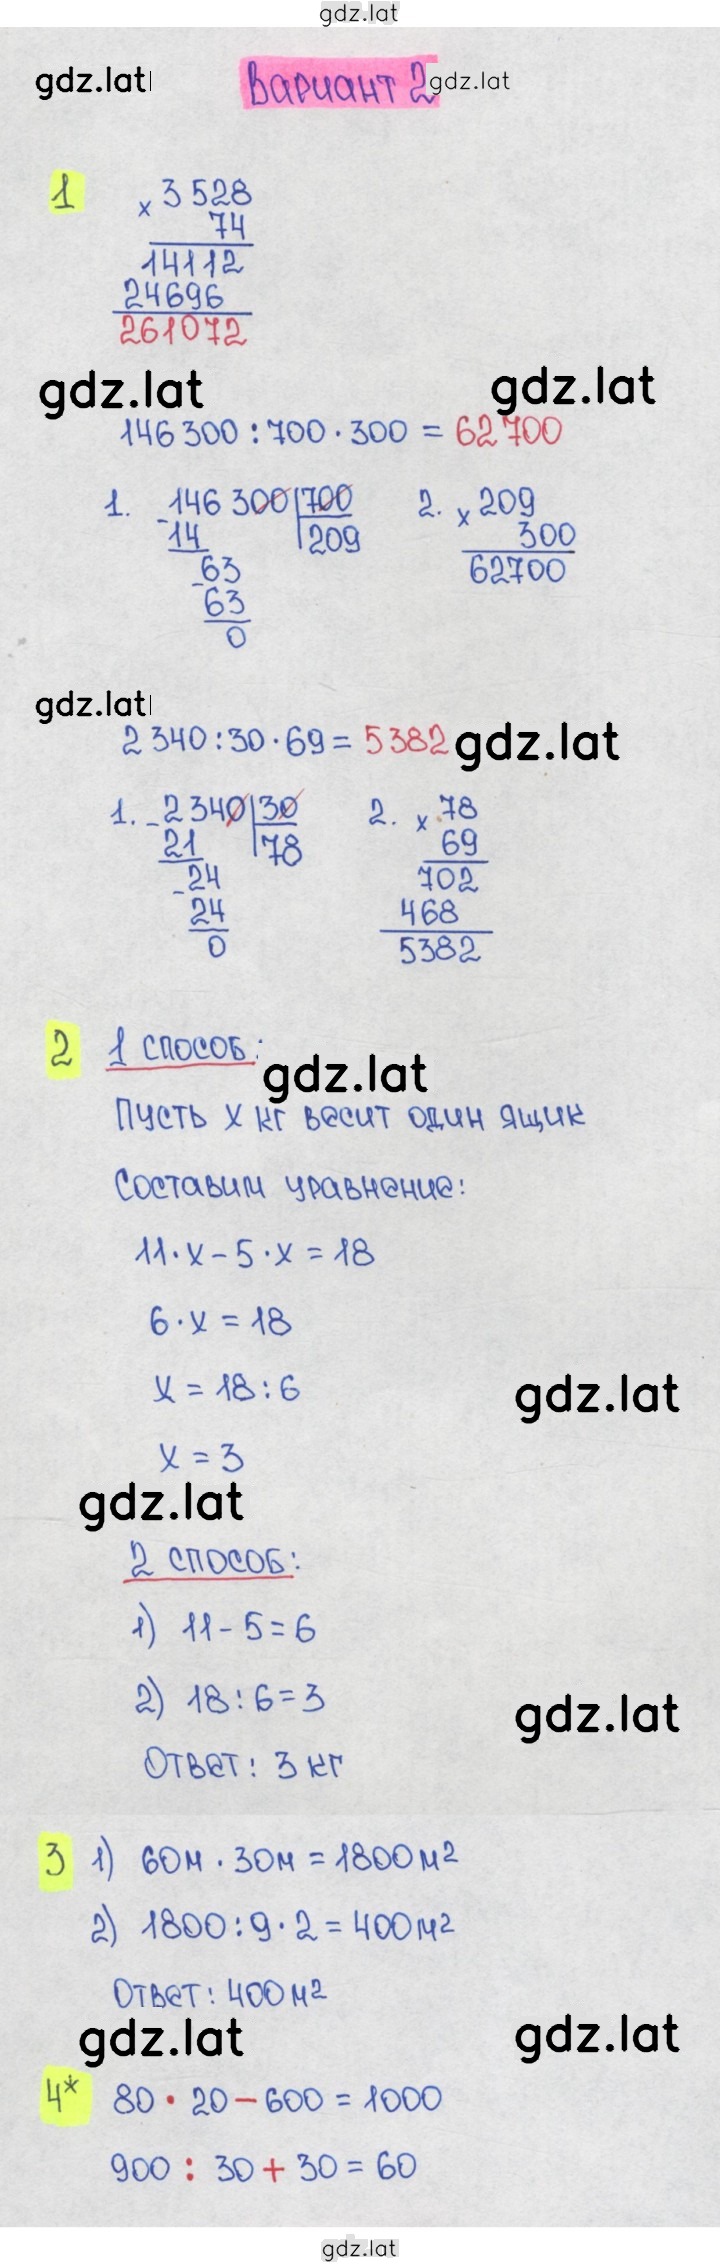 gdz.lat
gdz.lat
Вариант 2
gdz.lat
1
× 3 528
74
14112
24696
261072
gdz.lat
gdz.lat
146 300 : 700 · 300 = 62 700
1. - 146 300 | 700
14 | 209
- 63
63
0
2. × 209
300
62700
gdz.lat
2 340 : 30 · 69 = 5 382
gdz.lat
1. - 2 340 | 30
21 | 78
- 24
24
0
2. × 78
69
702
468
5382
2 1 способ:
gdz.lat
Пусть х кг весит один ящик
Составим уравнение:
11 · х - 5 · х = 18
6 · х = 18
х = 18 : 6
gdz.lat
х = 3
gdz.lat
2 способ:
1) 11 - 5 = 6
2) 18 : 6 = 3
gdz.lat
Ответ: 3 кг
3 1) 60м · 30м = 1800 м²
2) 1800 : 9 · 2 = 400 м²
Ответ: 400 м²
gdz.lat
gdz.lat
4* 80 · 20 - 600 = 1000
900 : 30 + 30 = 60
gdz.lat